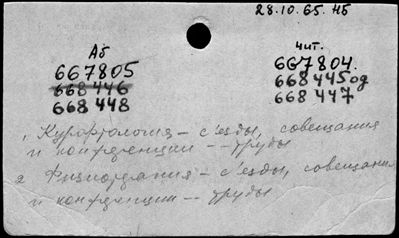 28.10.65. НБ
Аб чит.
667805 667804.
668446 668445 од
668448 668447
1. Курортология – с'езды, совещания
и конференции -- труды
2. Физиотерапия – с'езды, совещания
и конференции -- труды